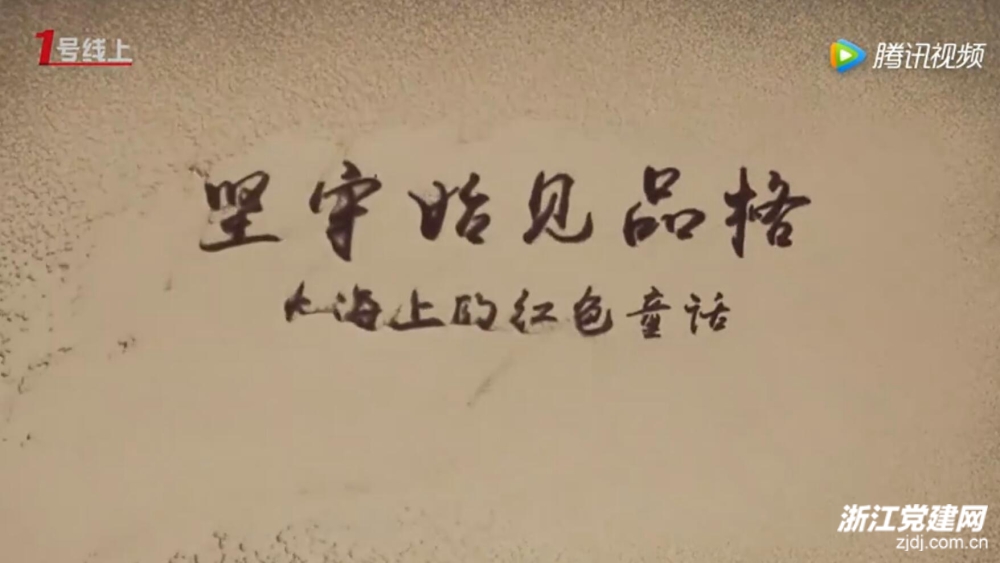 1号线上
腾讯视频
坚守始见品格
大海上的红色童话
浙江党建网
zjdj.com.cn